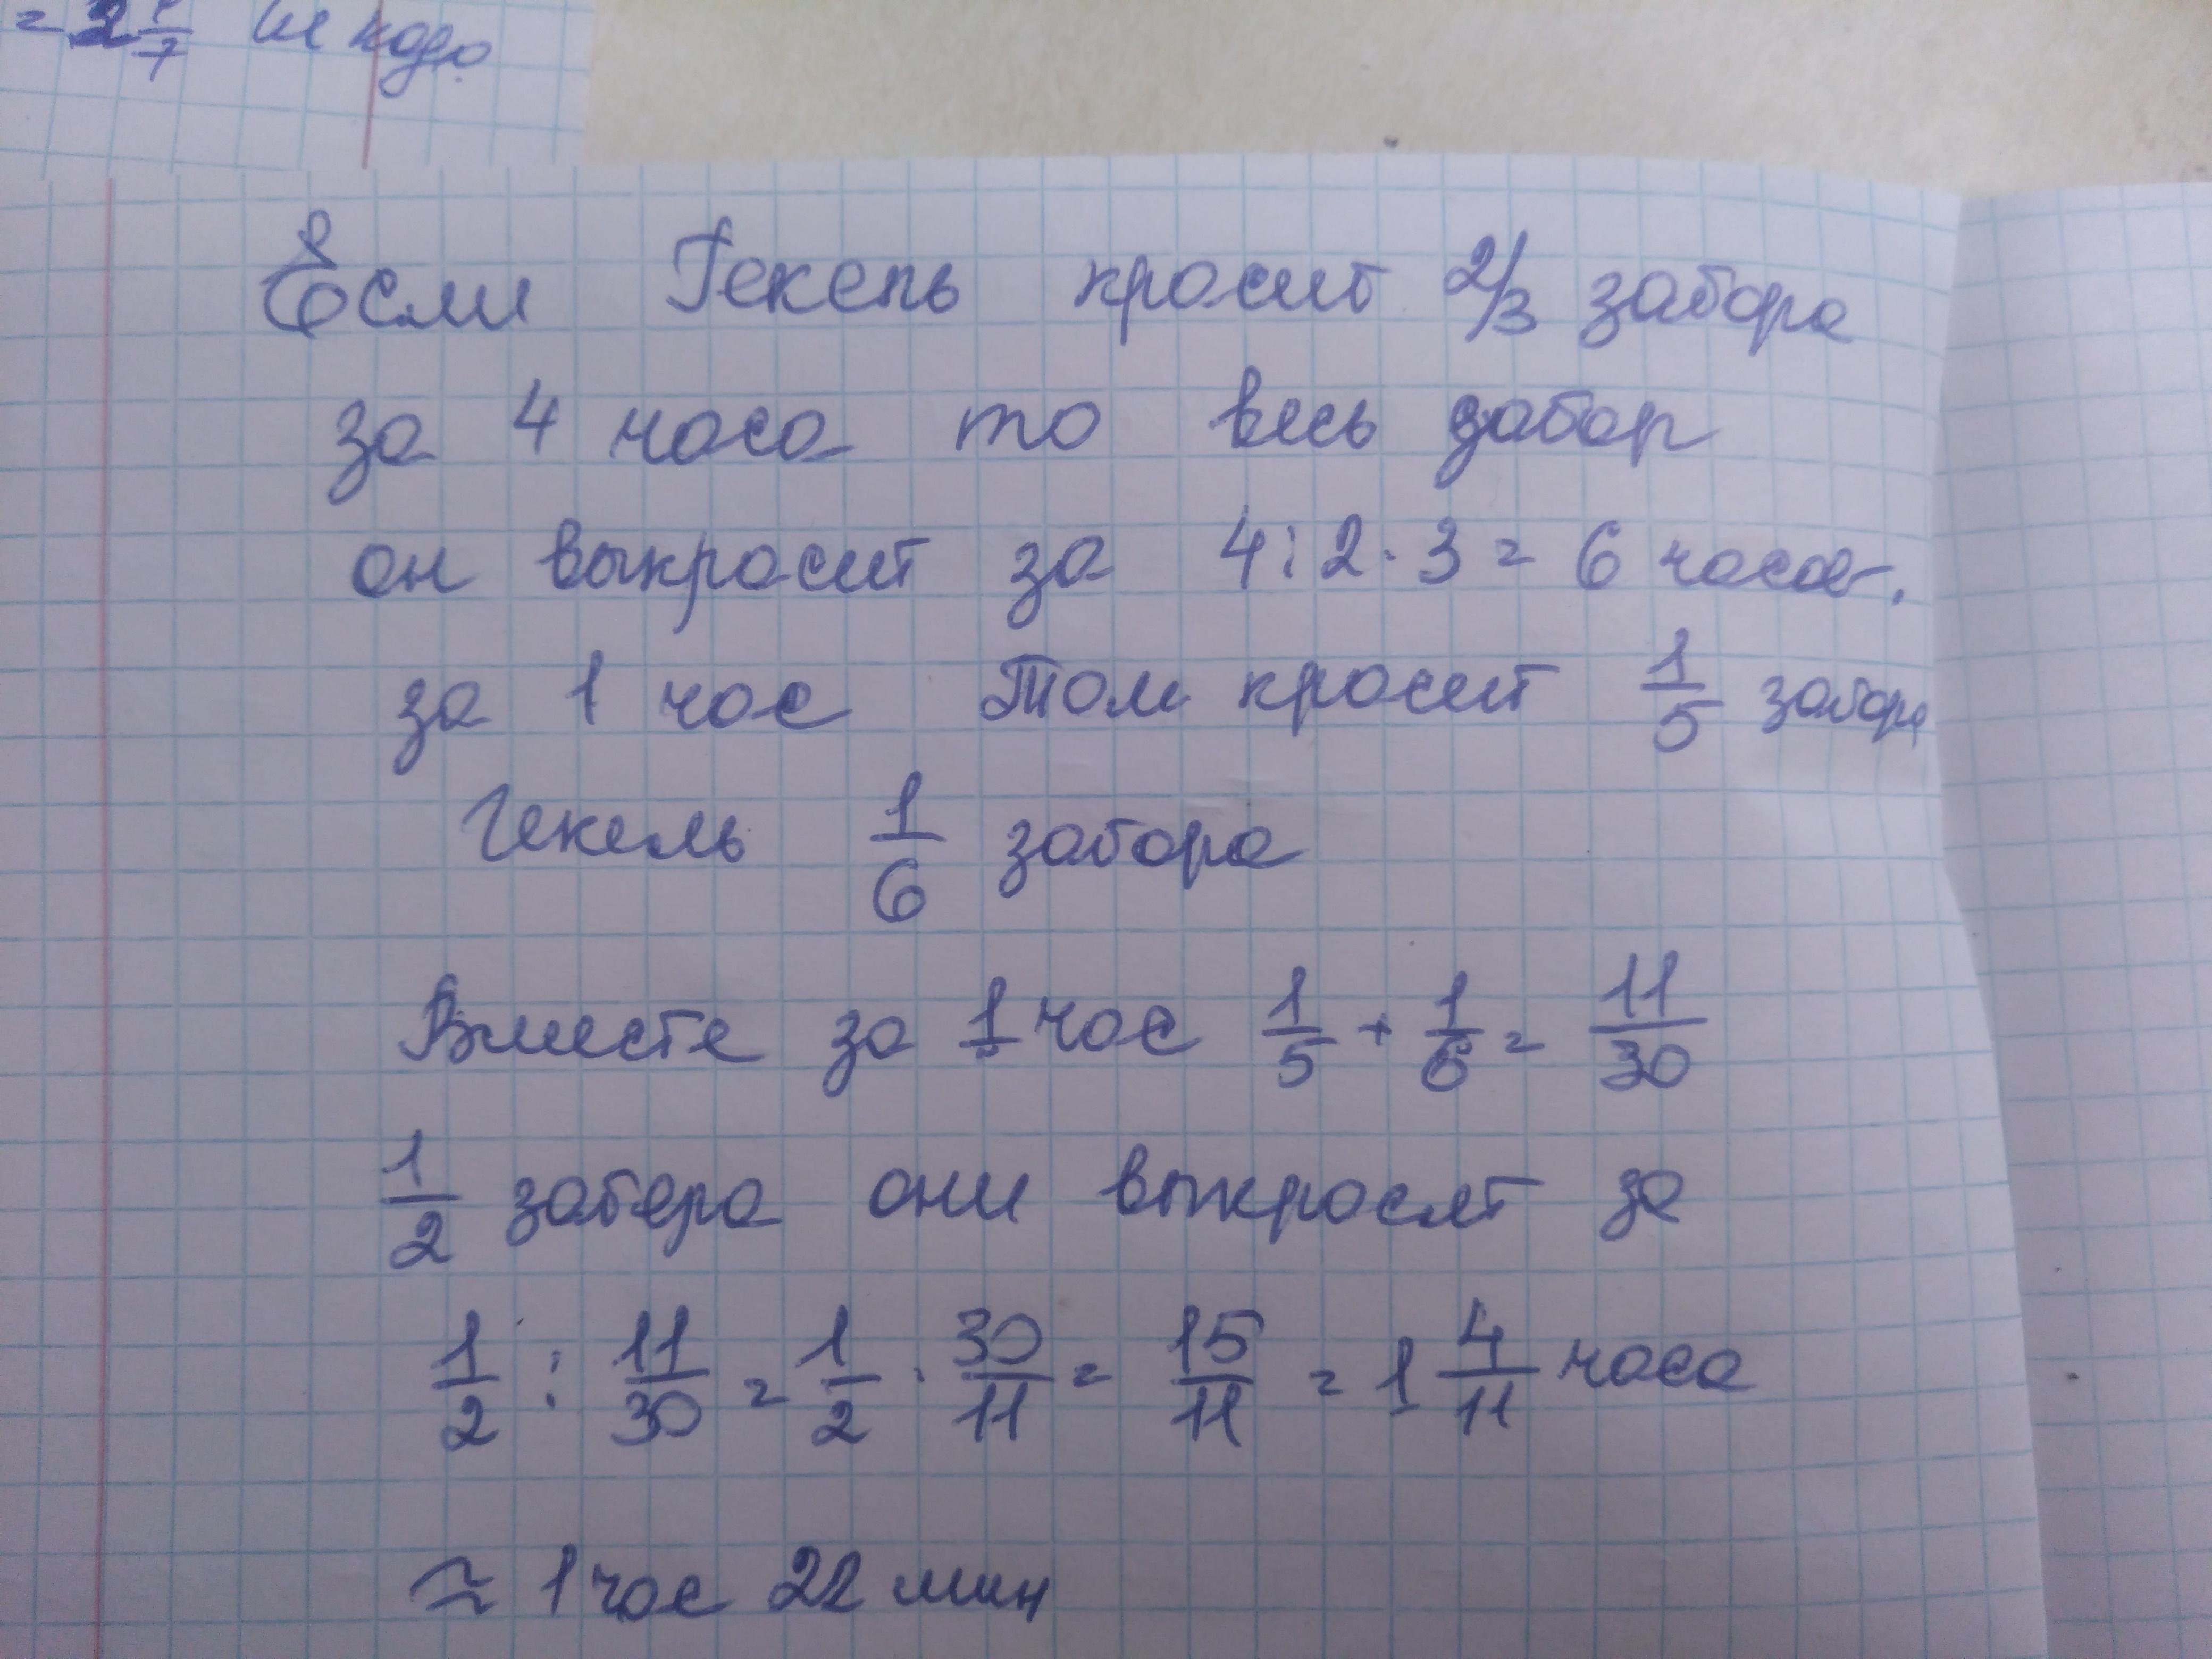 не надо
Если Гекель красит 2/3 забора
за 4 часа то весь забор
он выкрасит за 4:2·3=6 часов.
за 1 час Том красит 1/5 забора
Гекель 1/6 забора
Вместе за 1 час 1/5 + 1/6 = 11/30
1/2 забора они выкрасят за
1/2 : 11/30 = 1/2 · 30/11 = 15/11 = 1 4/11 часа
≈ 1 час 22 мин